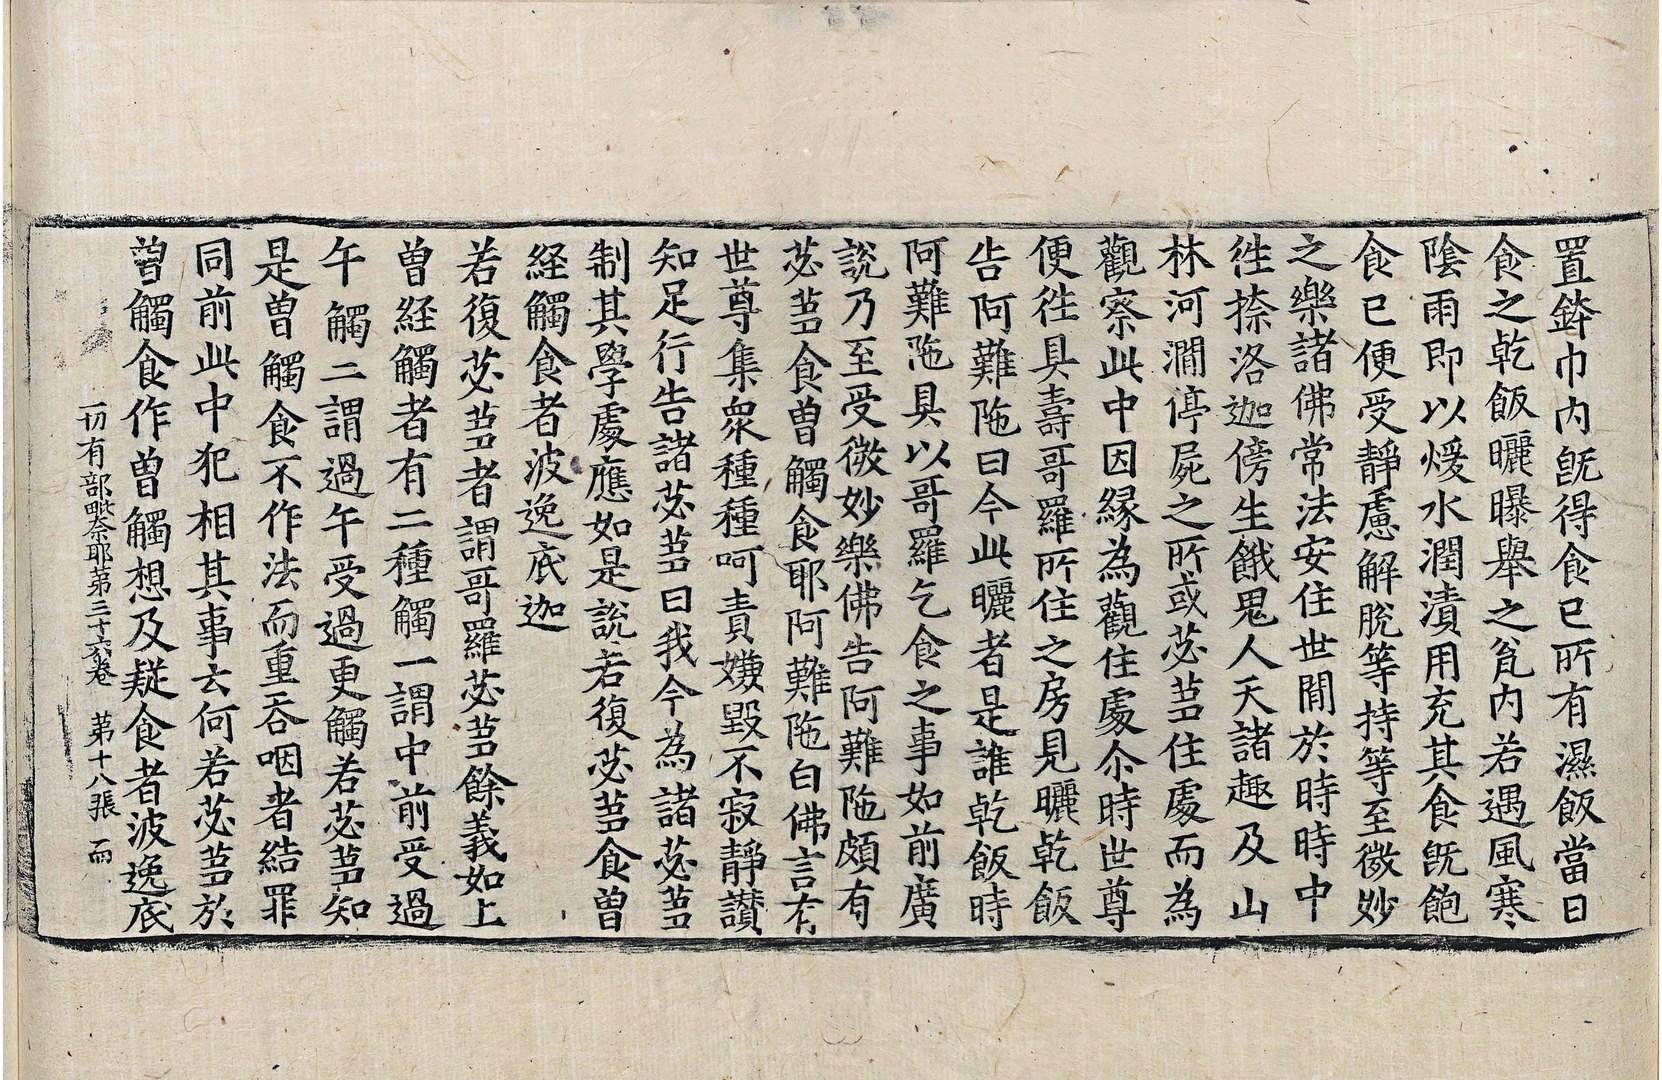 置鉢巾内旣得食已所有濕飯當日
食之乾飯曬曝舉之瓮内若遇風寒
陰雨即以煖水潤漬用充其食旣飽
食已便受靜慮解脫等持等至微妙
之樂諸佛常法安住世間於時時中
徃捺洛迦傍生餓鬼人天諸趣及山
林河澗停屍之所或苾芻住處而為
觀察此中因緣為觀住處尒時世尊
便徃具壽哥羅所住之房見曬乾飯
告阿難陁曰今此曬者是誰乾飯時
阿難陁具以哥羅乞食之事如前廣
說乃至受微妙樂佛告阿難陁頗有
苾芻食曾觸食耶阿難陁白佛言有
世尊集衆種種呵責嫌毀不寂靜讃
知足行告諸苾芻曰我今為諸苾芻
制其學處應如是說若復苾芻食曾
經觸食者波逸底迦
若復苾芻者謂哥羅苾芻餘義如上
曾經觸者有二種觸一謂中前受過
午觸二謂過午受過更觸若苾芻知
是曾觸食不作法而重吞咽者結罪
同前此中犯相其事云何若苾芻於
曾觸食作曾觸想及疑食者波逸底
一切有部毗奈耶第三十六卷 第十八張 而